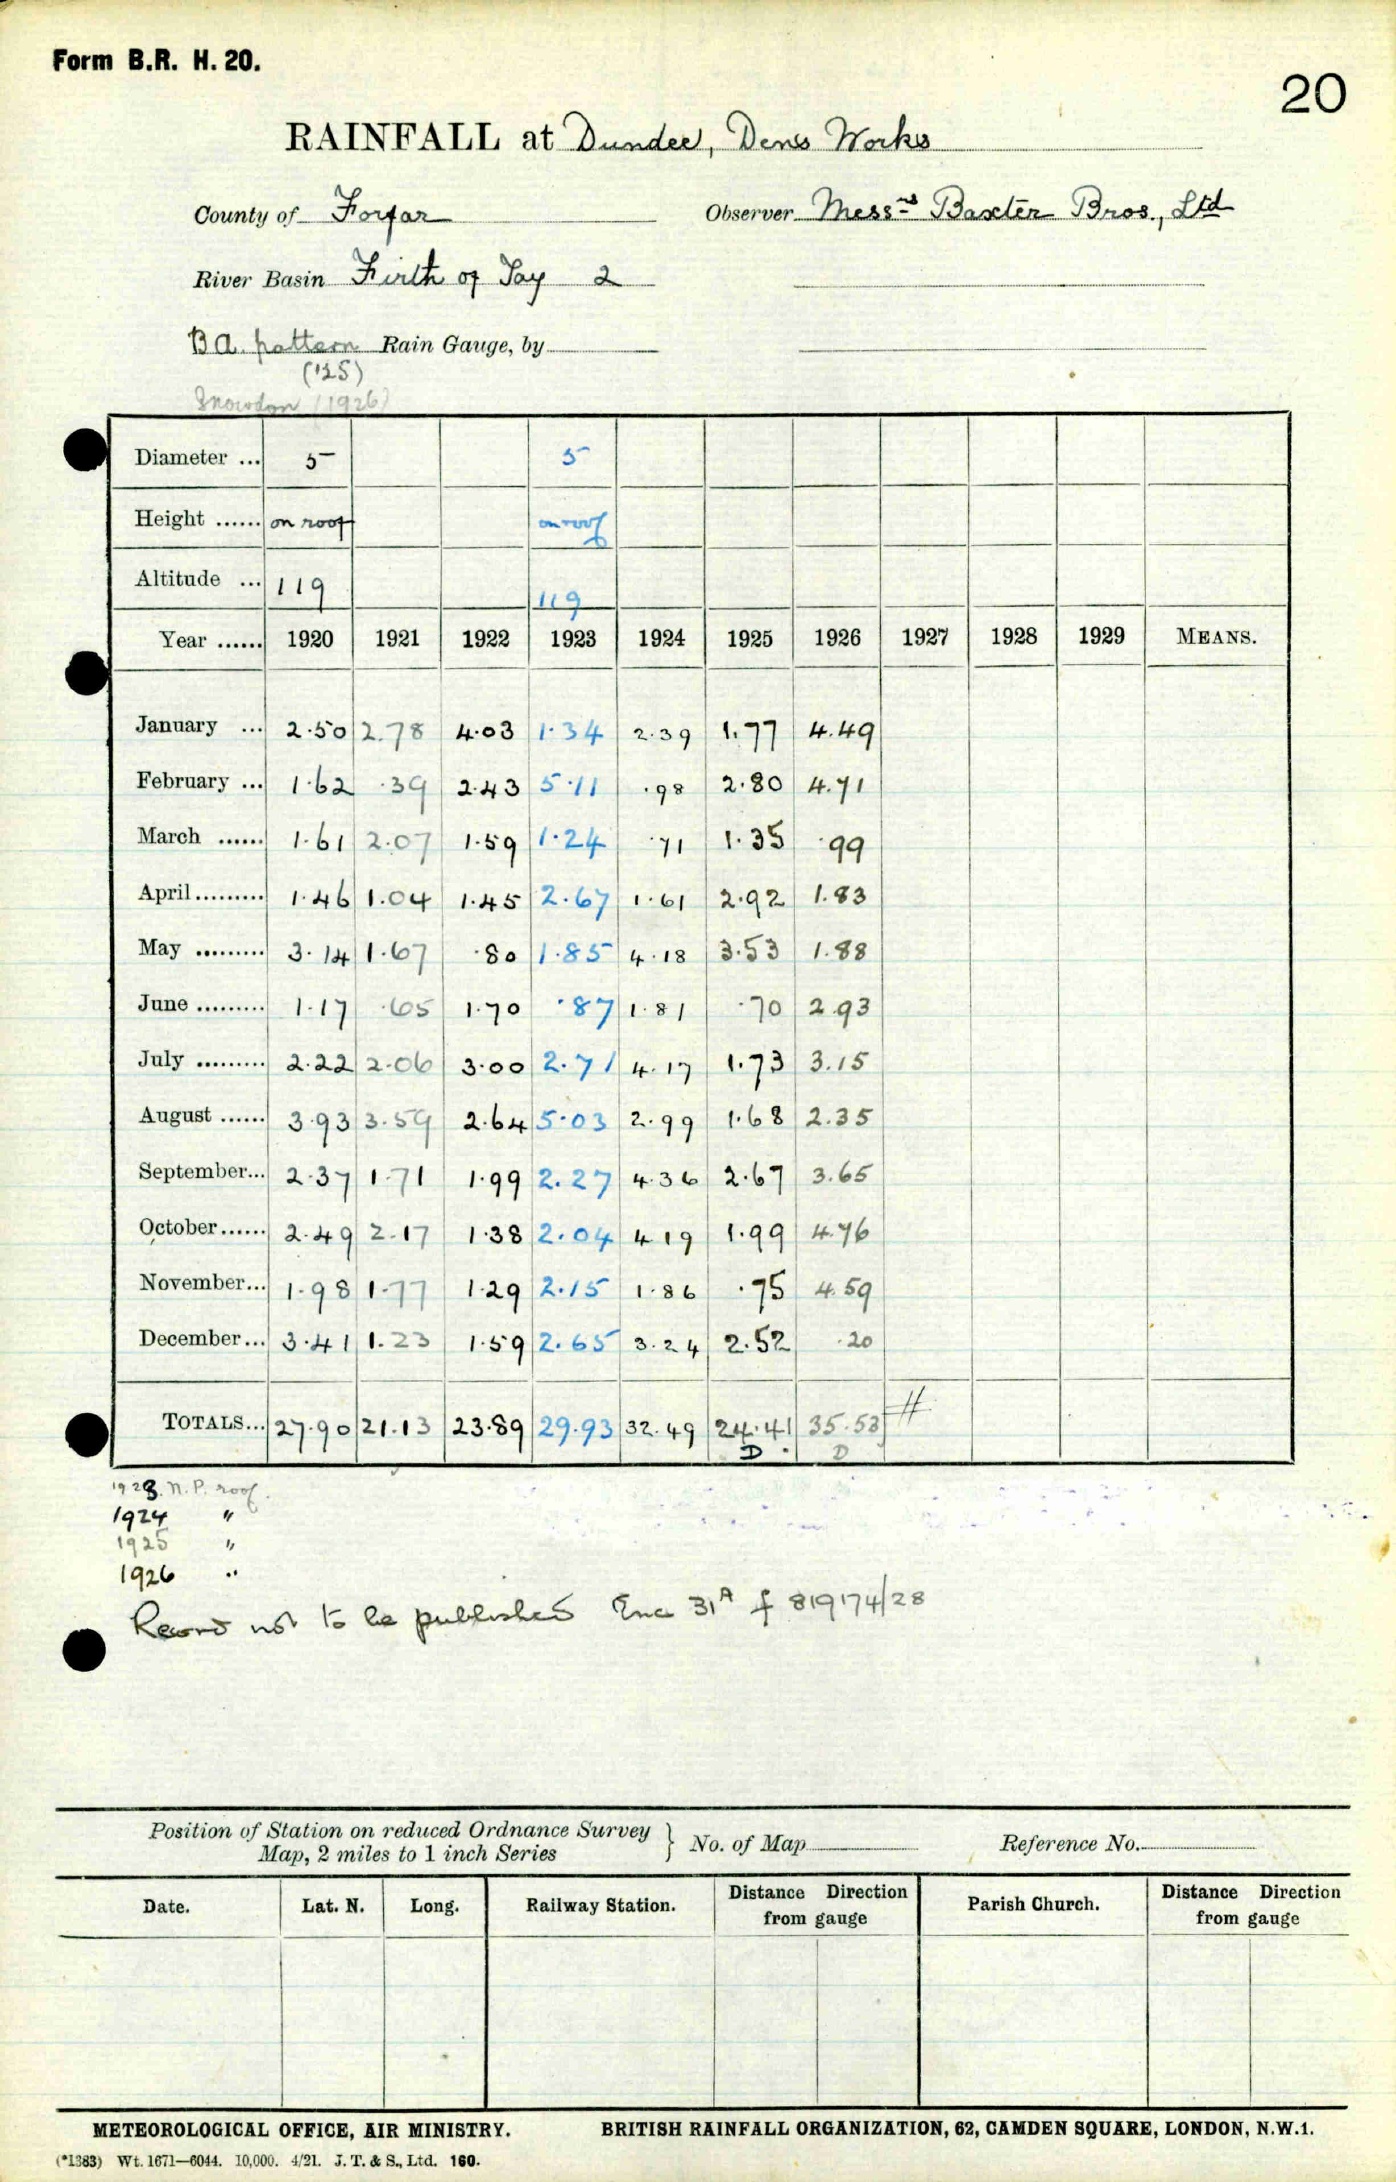 Form B.R. H. 20.
20
RAINFALL at Dundee, Dens Works
County of Forfar Observer Messrs Baxter Bros., Ltd
River Basin Firth of Tay 2
B A. pattern Rain Gauge, by
('25)
Snowdon (1926)
Diameter ... 5 5
Height ...... on roof on roof
Altitude ... 119 119
Year ...... 1920 1921 1922 1923 1924 1925 1926 1927 1928 1929 MEANS.
January ... 2.50 2.78 4.03 1.34 2.39 1.77 4.49
February ... 1.62 .39 2.43 5.11 .98 2.80 4.71
March ...... 1.61 2.07 1.59 1.24 .71 1.35 .99
April ......... 1.46 1.04 1.45 2.67 1.61 2.92 1.83
May ......... 3.14 1.67 .80 1.85 4.18 3.53 1.88
June ......... 1.17 .65 1.70 .87 1.81 .70 2.93
July ......... 2.22 2.06 3.00 2.71 4.17 1.73 3.15
August ...... 3.93 3.59 2.64 5.03 2.99 1.68 2.35
September... 2.37 1.71 1.99 2.27 4.36 2.67 3.65
October...... 2.49 2.17 1.38 2.04 4.19 1.99 4.76
November... 1.98 1.77 1.29 2.15 1.86 .75 4.59
December... 3.41 1.23 1.59 2.65 3.24 2.52 .20
TOTALS... 27.90 21.13 23.89 29.93 32.49 24.41 35.53 #
D. D
1923. N.P. roof.
1924 "
1925 "
1926 "
Record not to be published Enc 31A f 819174/28
Position of Station on reduced Ordnance Survey
Map, 2 miles to 1 inch Series } No. of Map Reference No.
Date. Lat. N. Long. Railway Station. Distance Direction from gauge Parish Church. Distance Direction from gauge
METEOROLOGICAL OFFICE, AIR MINISTRY. BRITISH RAINFALL ORGANIZATION, 62, CAMDEN SQUARE, LONDON, N.W.1.
(*1383) Wt. 1671—6044. 10,000. 4/21. J. T. & S., Ltd. 160.